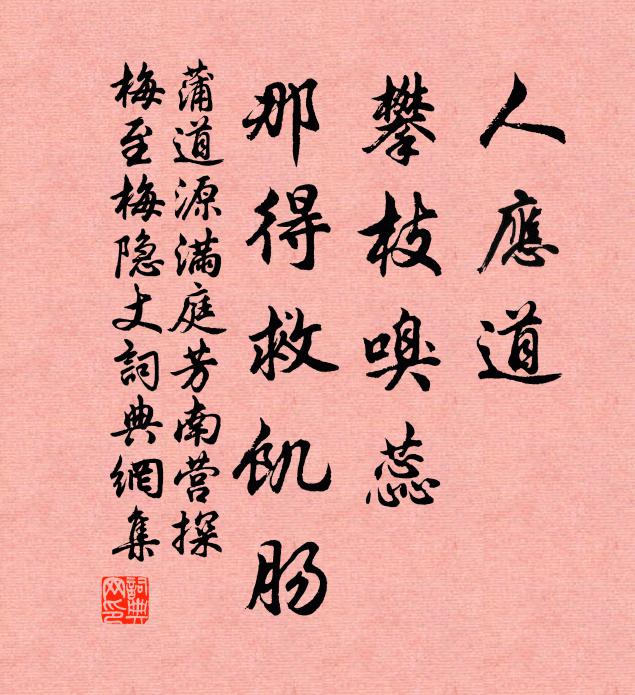 人應道
攀枝嗅蕊
那得救飢肠
蒲道源满庭芳南营探
梅至梅隐丈詞典網集
詞典網印